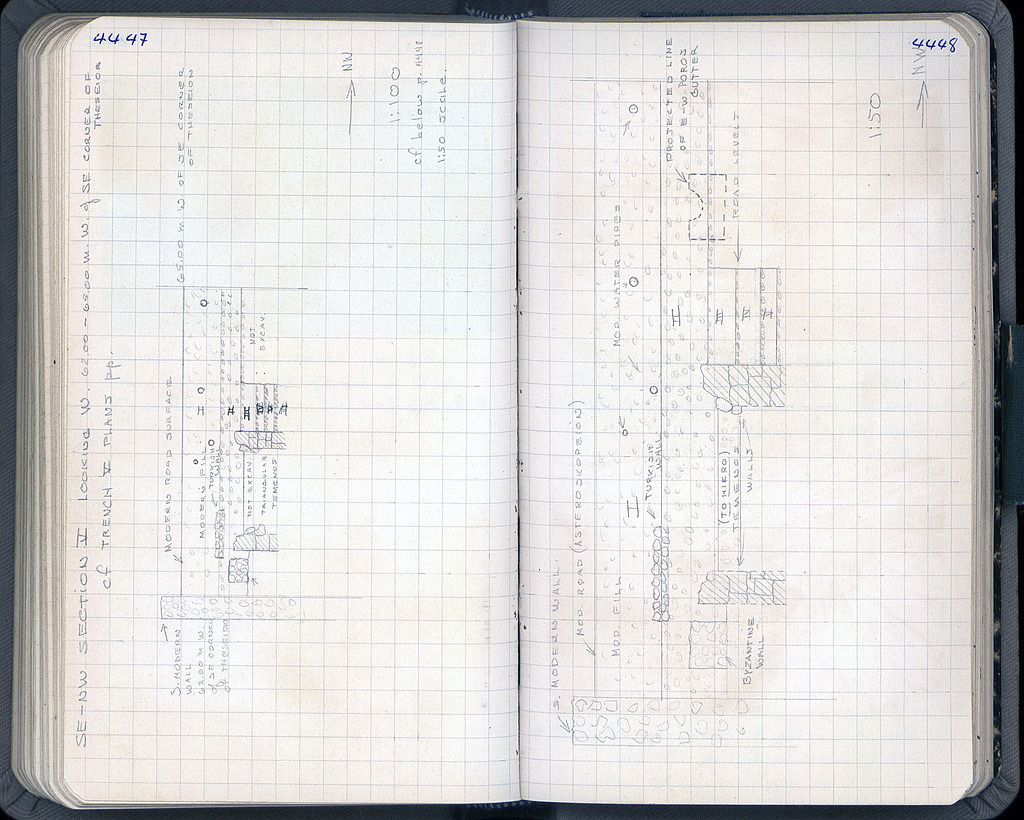 4447
SE-NW SECTION V LOOKING W. 62.00-65.00 m. W. of SE CORNER OF
THESEION
cf TRENCH V PLANS pp.
65.00 m W. OF SE CORNER
OF THESEION
MODERN ROAD SURFACE
MODERN FILL
TURKISH
WALL
NOT EXCAV
TRIANGULAR
TEMENOS
NOT
EXCAV.
I
II
III
IV
V
S. MODERN
WALL
62.00 m W.
of SE CORNER
of THESEION
NW
1:100
cf below p. 4448
1:50 scale.
4448
NW
1:50
S. MODERN WALL.
MOD. ROAD (ASTEROSKOPEION)
MOD. FILL
MOD. WATER PIPES
I
TURKISH
WALL
PROJECTED LINE
OF E-W POROS
GUTTER
II
III
IV
V
ROAD LEVELS
(TO HIERO)
TEMENOS
WALLS
BYZANTINE
WALL